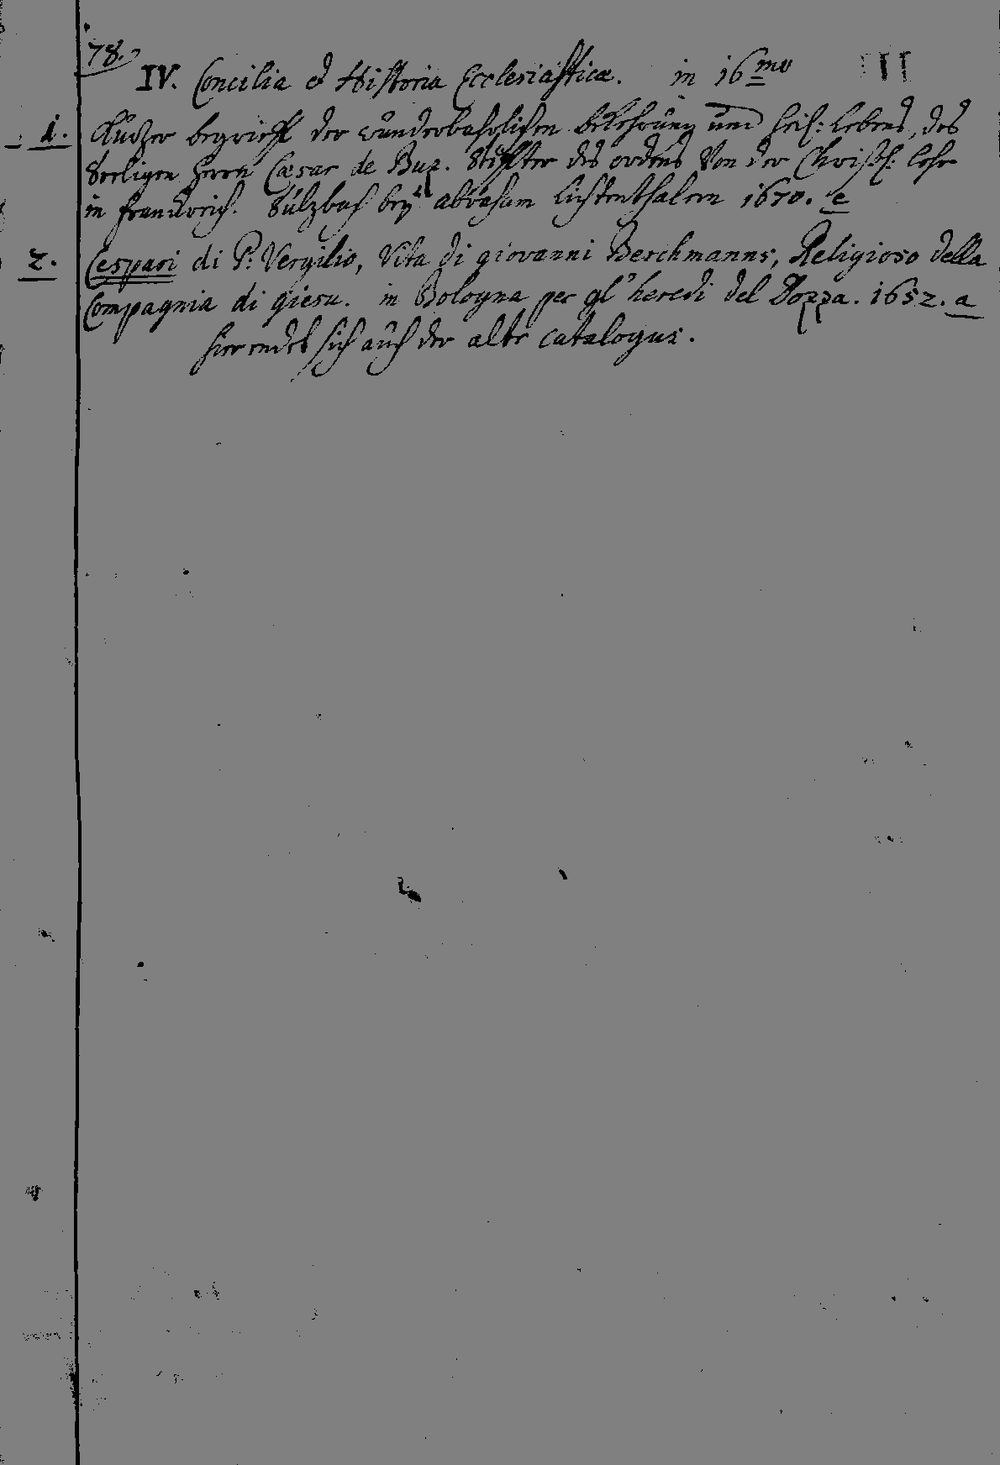 78.
IV. Concilia et Historia Ecclesiastica. in 16mo
1. Kurzer begrieff der wunderbahrlichen bekehrung und heil: lebens, des
Seeligen Herrn Cæsar de Buz. Stiffter des ordens Von der Christl: lehr
in franckreich. Sulzbach bey abraham lichtenthalern 1670. e
2. Cespari di P. Vergilio, Vita di giovanni Berchmanns, Religioso della
Compagnia di giesu. in Bologna per gl' heredi del Dozza. 1652. a
hier endet sich auch der alte catalogus.